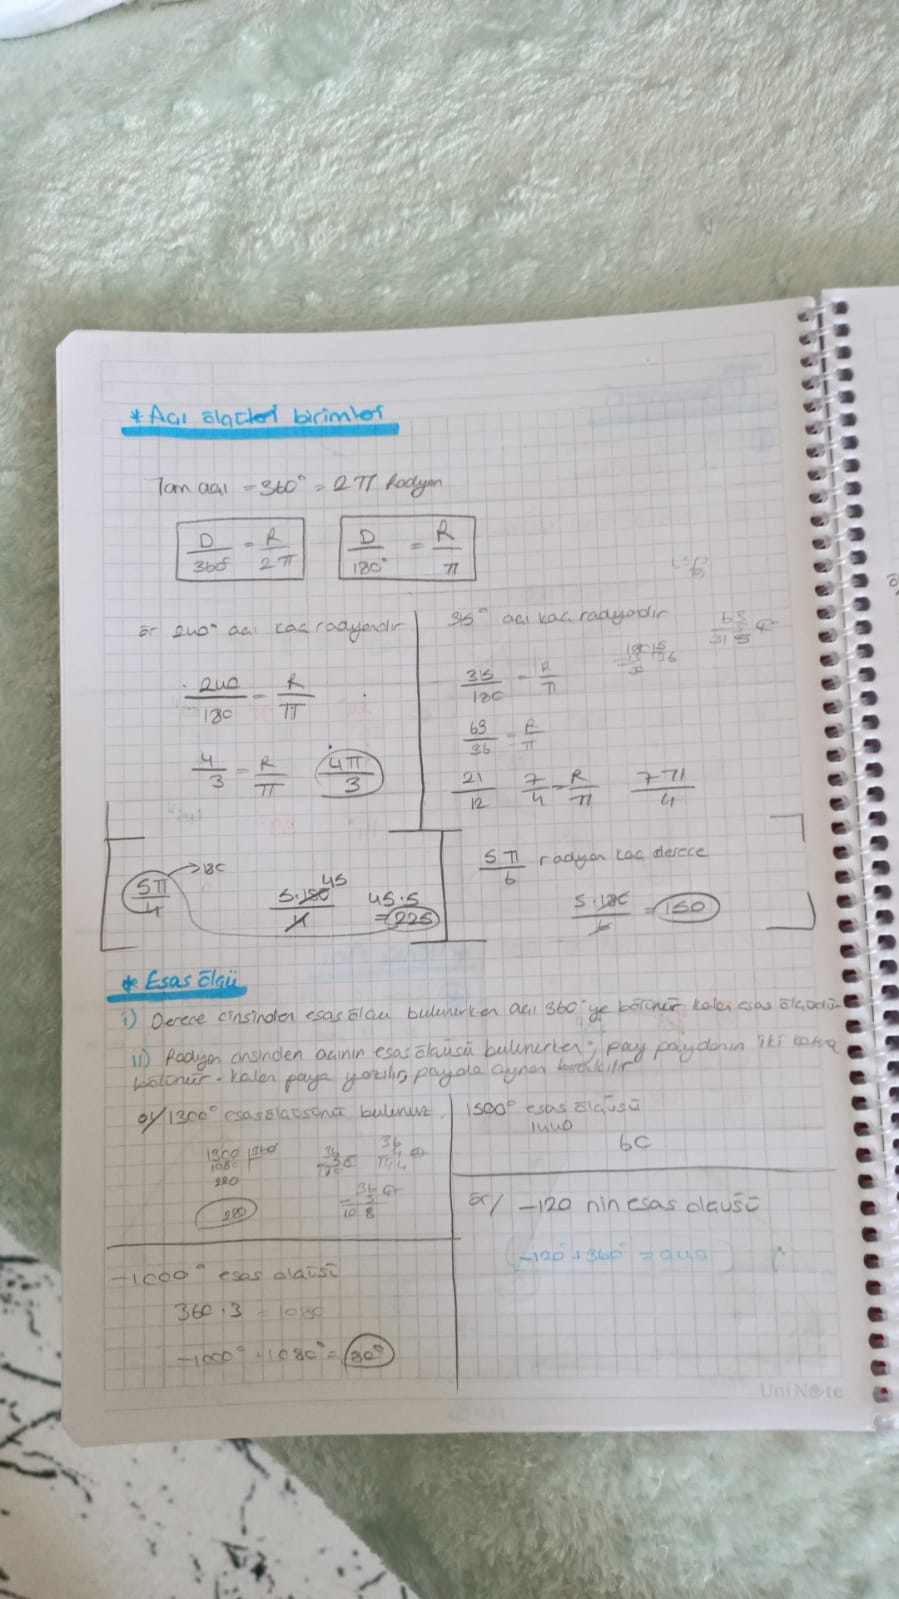 * Açı ölçüleri birimleri
Tam açı = 360° = 2π Radyan
D/360° = R/2π
D/180° = R/π
ör 240° açı kaç radyandır
240/180 = R/π
4/3 = R/π
4π/3
315° açı kaç radyandır
315/180 = R/π
63/36 = R/π
21/12 7/4 = R/π 7π/4
5π/4 → 180
5.180/4 45
45.5
= 225
5π/6 radyan kaç derece
5.180/6 = 150
* Esas ölçü
i) Derece cinsinden esas ölçü bulunurken açı 360° ye bölünür kalan esas ölçüdür
ii) Radyan cinsinden açının esas ölçüsü bulunurken; pay paydanın iki katına
bölünür. kalan paya yazılıp payda aynen bırakılır
ö/ 1300° esas ölçüsünü bulunuz.
1300 | 360
1080
220
220
1500° esas ölçüsü
1440
60
ör/ -120 nin esas ölçüsü
-120° + 360° = 240
-1000° esas ölçüsü
360.3 = 1080
-1000° + 1080° = 80°
UniNote